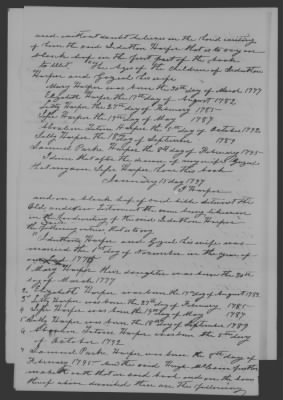 and without doubt believes in the hand writing
of him the said Jedathan Harper that is to say on
blank leaf in the first part of the book
to Wit. "The Ages of the Children of Jedathan
Harper and Gizeal his wife
Mary Harper was born the 30th day of March 1777
Elizabeth Harper the 17th day of August 1782
Letty Harper the 27th day of February 1785
Jefse Harper the 19th day of May 1787
Abraham Harper the 8th day of October 1792
Sally Harper the day of September 1789
Samuel Parke Harper the 8th day of February 1795
that my son Jefse Harper have this book
January 15 day 1797
J Harper
and on a blank leaf of said bible between the
Old and New Testament the same being likewise
in the handwriting of the said Jedathan Harper
the following entries that is to say
Jedathan Harper and Gizeal his wife was
married the day of November in the year of
1775
1 Mary Harper their daughter was born the 30th
day of March 1777
2 Elizabeth Harper was born the 17th day of August 1782
3 Letty Harper was born the 27th day of February 1785
4 Jefse Harper was born the 19th day of May 1787
5 Sally Harper was born the 18th day of September 1789
6 Harper was born the 8th day
of October 1792
7 Samuel Parke Harper was born the 8th day of
February 1795 and the said Hugh further
oath that on said book and on the same
leaf above are the following